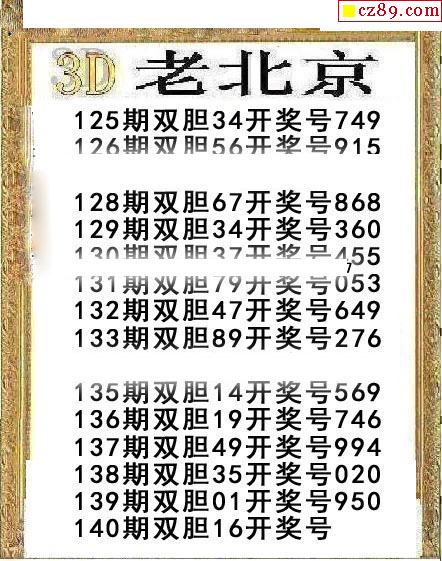 cz89.com
3D 老北京
125期双胆34开奖号749
126期双胆56开奖号915
128期双胆67开奖号868
129期双胆34开奖号360
130期双胆37开奖号455
7
131期双胆79开奖号053
132期双胆47开奖号649
133期双胆89开奖号276
135期双胆14开奖号569
136期双胆19开奖号746
137期双胆49开奖号994
138期双胆35开奖号020
139期双胆01开奖号950
140期双胆16开奖号